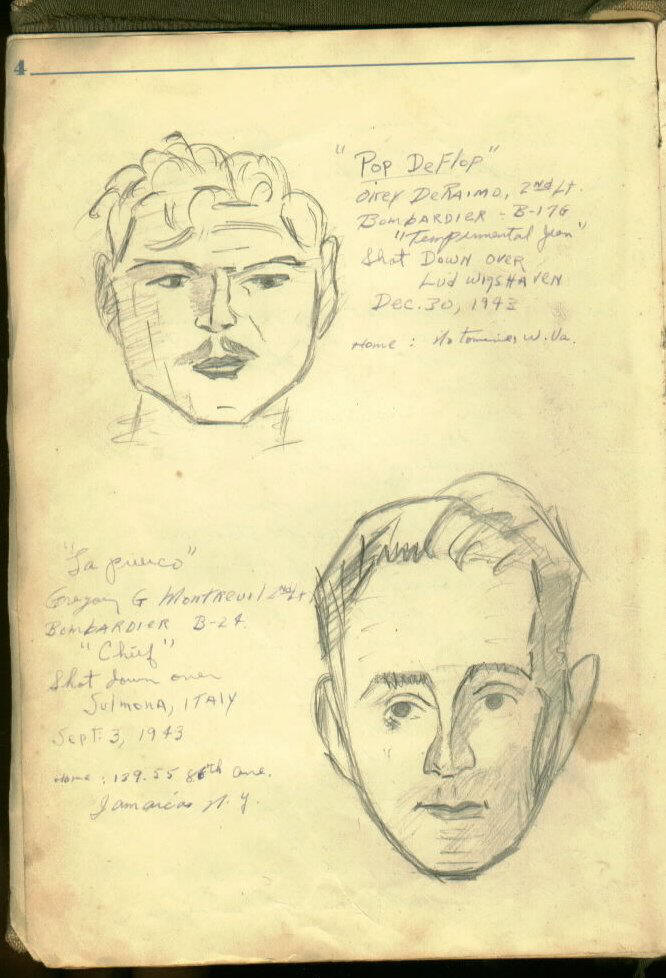 4
"Pop DeFlop"
Oirey DeRAIMO, 2nd Lt.
BOMBARDIER - B-17G
"Tempimental Jean"
Shot Down over
Ludwigshaven
Dec. 30, 1943
Home : W. Va.
"La
Gregory G Montreuil 2nd Lt
BOMBARDIER B-24
"Chief"
Shot down over
Sulmona, ITALY
Sept. 3, 1943
Home : 139.55 86th ave.
Jamaica N.Y.